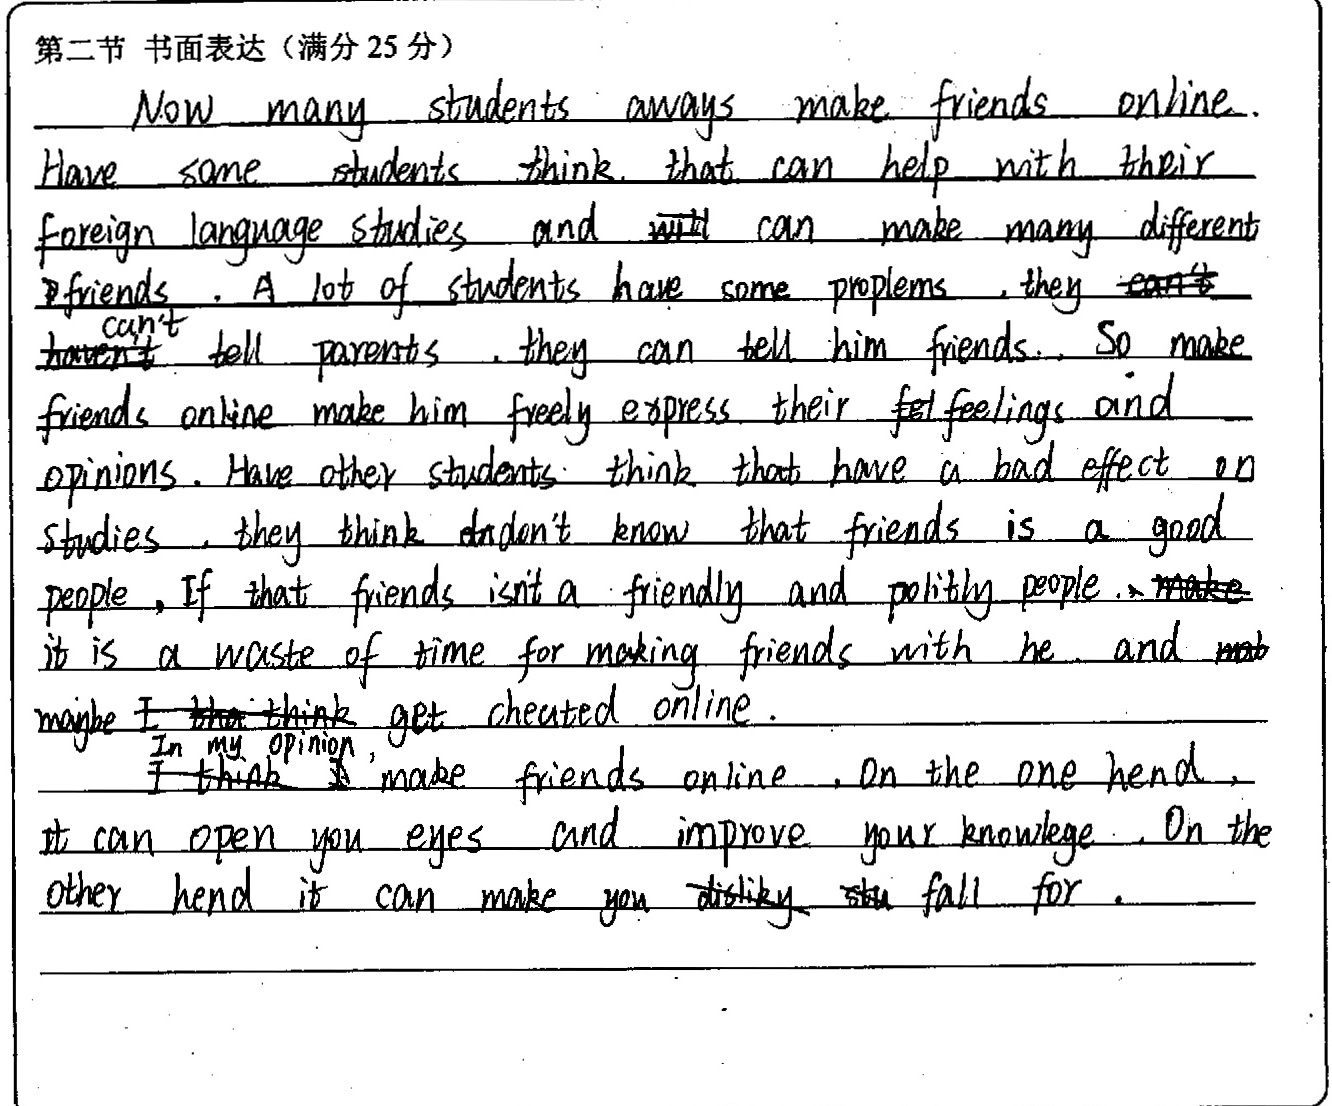 第二节 书面表达（满分 25 分）
Now many students aways make friends online.
Have some students think. that can help with their
foreign language studies and can make many different
friends. A lot of students have some proplems. they
can't
tell parents. they can tell him friends. So make
friends online make him freely express their feelings and
opinions. Have other students think that have a bad effect on
studies. they think don't know that friends is a good
people, If that friends isn't a friendly and politly people.
it is a waste of time for making friends with he and
maybe get cheated online.
In my opinion,
make friends online. On the one hend,
it can open you eyes and improve your knowlege. On the
other hend it can make you fall for.